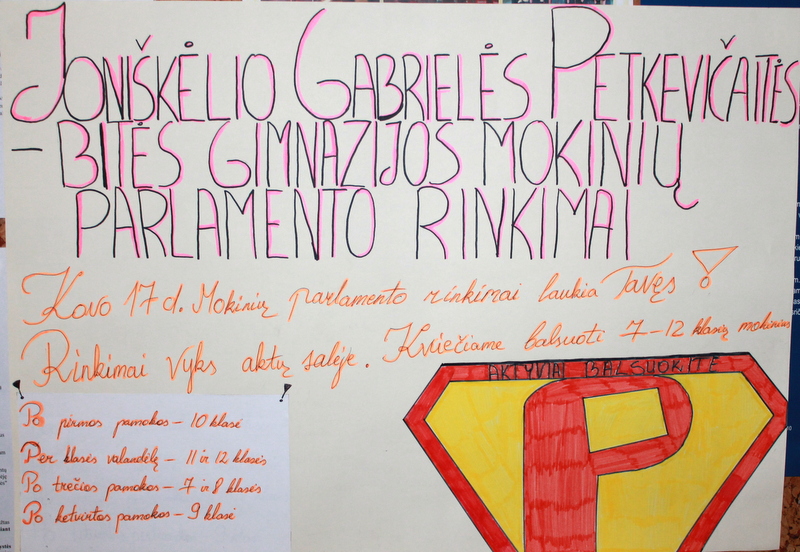 JONIŠKĖLIO GABRIELĖS PETKEVIČAITĖS
- BITĖS GIMNAZIJOS MOKINIŲ
PARLAMENTO RINKIMAI
Kovo 17 d. Mokinių parlamento rinkimai laukia Tavęs!
Rinkimai vyks aktų salėje. Kviečiame balsuoti 7-12 klasių mokinius
AKTYVIAI BALSUOKITE
P
Po pirmos pamokos - 10 klasė
Per klasės valandėlę - 11 ir 12 klasės
Po trečios pamokos - 7 ir 8 klasės
Po ketvirtos pamokos - 9 klasė